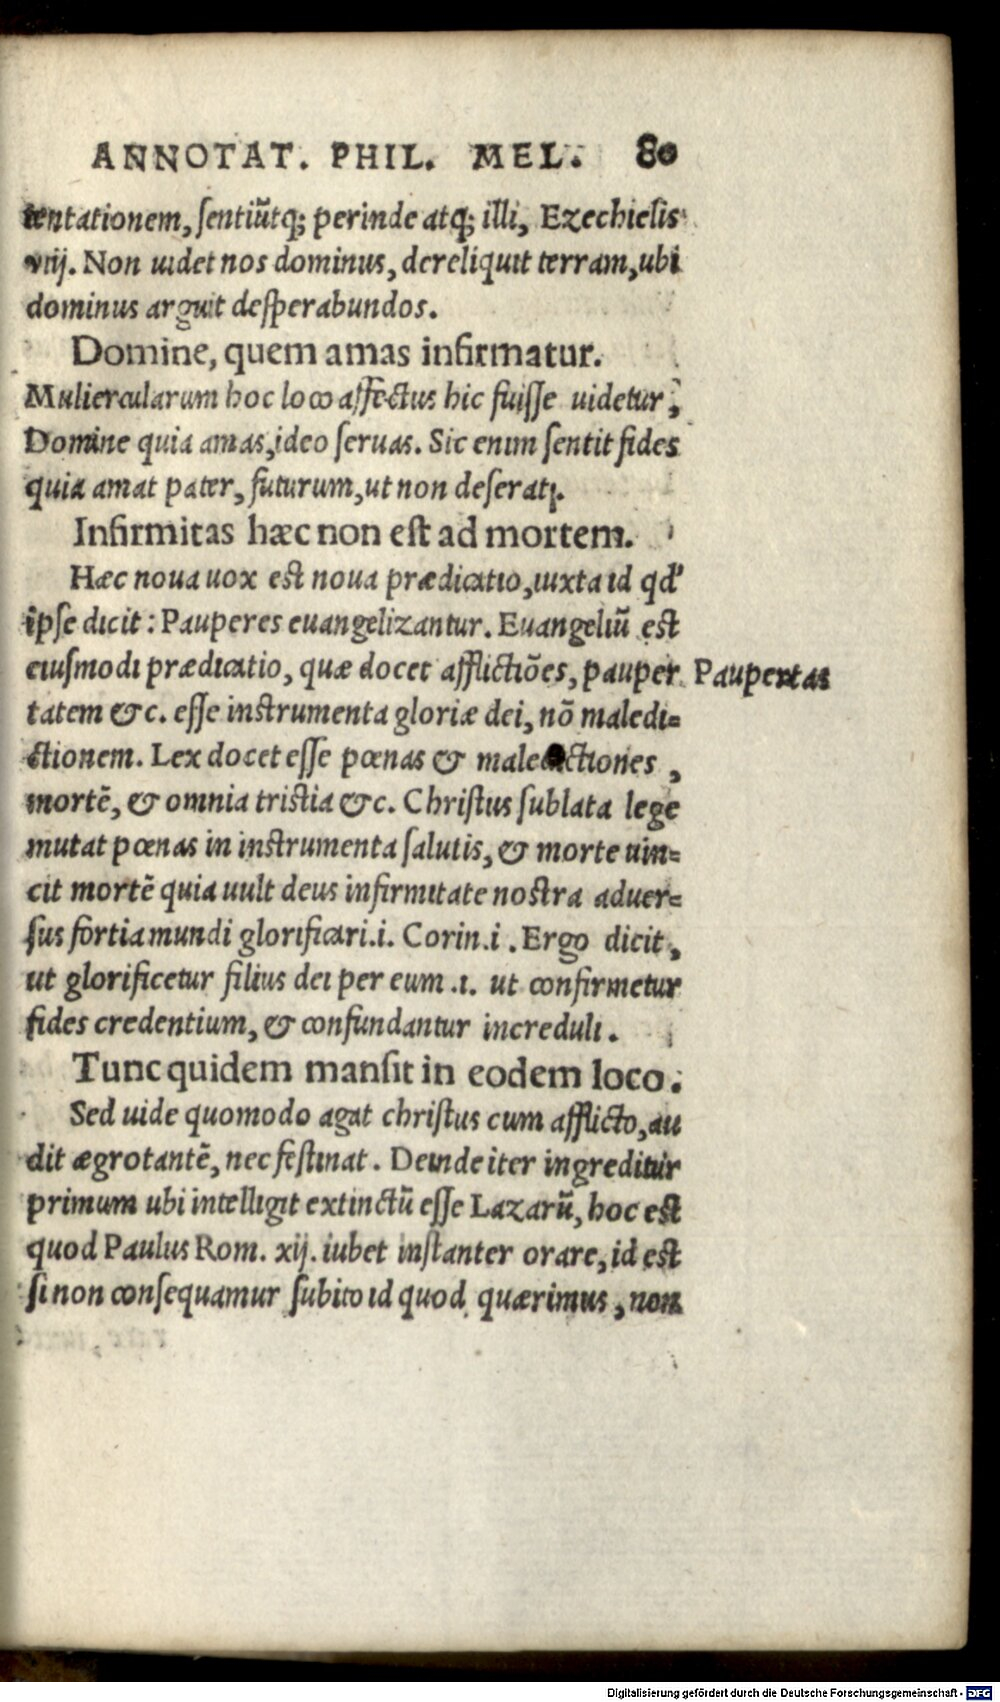 ANNOTAT. PHIL. MEL. 80
tentationem, ſentiũtq; perinde atq; illi, Ezechielis
viij. Non uidet nos dominus, dereliquit terram, ubi
dominus arguit deſperabundos.
Domine, quem amas infirmatur.
Muliercularum hoc loco affectus hic fuiſſe uidetur,
Domine quia amas, ideo ſeruas. Sic enim ſentit fides
quia amat pater, futurum, ut non deſerat.
Infirmitas hæc non est ad mortem.
Hæc noua uox est noua prædicatio, iuxta id qd'
ipſe dicit: Pauperes euangelizantur. Euangeliũ est
eiuſmodi prædicatio, quæ docet afflictiões, pauper
Paupertas
tatem &c. eſſe instrumenta gloriæ dei, nõ maledi=
ctionem. Lex docet eſſe pœnas & maledictiones,
mortẽ, & omnia tristia &c. Christus ſublata lege
mutat pœnas in instrumenta ſalutis, & morte uin=
cit mortẽ quia uult deus infirmitate nostra aduer=
ſus fortia mundi glorificari.i. Corin.i. Ergo dicit,
ut glorificetur filius dei per eum .i. ut confirmetur
fides credentium, & confundantur increduli.
Tunc quidem manſit in eodem loco.
Sed uide quomodo agat christus cum afflicto, au
dit ægrotantẽ, nec festinat. Deinde iter ingreditur
primum ubi intelligit extinctũ eſſe Lazarũ, hoc est
quod Paulus Rom. xij. iubet instanter orare, id est
ſi non conſequamur ſubito id quod quærimus, non
Digitalisierung gefördert durch die Deutsche Forschungsgemeinschaft - DFG